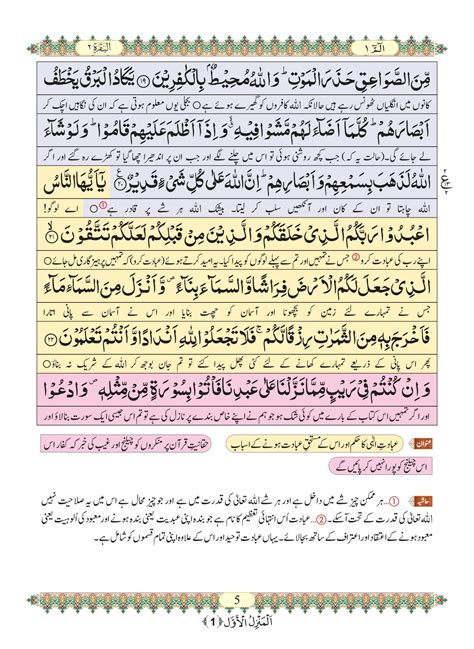 البقرة ٢
الٓمّٓ ١
مِّنَ الصَّوَاعِقِ حَذَرَ الْمَوْتِ ؕ وَاللّٰهُ مُحِيْطٌۢ بِالْكٰفِرِيْنَ ﴿۱۹﴾ يَكَادُ الْبَرْقُ يَخْطَفُ
کانوں میں انگلیاں ٹھونس رہے ہیں حالانکہ اللہ کافروں کو گھیرے ہوئے ہے ○ بجلی یوں معلوم ہوتی ہے کہ ان کی نگاہیں اچک کر
اَبْصَارَهُمْ ؕ كُلَّمَاۤ اَضَآءَ لَهُمْ مَّشَوْا فِيْهِ ۙ وَ اِذَاۤ اَظْلَمَ عَلَيْهِمْ قَامُوْا ؕ وَ لَوْ شَآءَ
لے جائے گی۔ (حالت یہ کہ) جب کچھ روشنی ہوئی تو اس میں چلنے لگے اور جب ان پر اندھیرا چھا گیا تو کھڑے رہ گئے اور اگر
اللّٰهُ لَذَهَبَ بِسَمْعِهِمْ وَ اَبْصَارِهِمْ ؕ اِنَّ اللّٰهَ عَلٰى كُلِّ شَیْءٍ قَدِيْرٌ ﴿۲۰﴾ يٰۤاَيُّهَا النَّاسُ
اللہ چاہتا تو ان کے کان اور آنکھیں سلب کر لیتا۔ بیشک اللہ ہر شے پر قادر ہے ①○ اے لوگو!
اعْبُدُوْا رَبَّكُمُ الَّذِیْ خَلَقَكُمْ وَالَّذِيْنَ مِنْ قَبْلِكُمْ لَعَلَّكُمْ تَتَّقُوْنَ ﴿۲۱﴾
اپنے رب کی عبادت کرو② جس نے تمہیں اور تم سے پہلے لوگوں کو پیدا کیا۔ یہ امید کرتے ہوئے (عبادت کرو) کہ تمہیں پرہیزگاری مل جائے○
الَّذِیْ جَعَلَ لَكُمُ الْاَرْضَ فِرَاشًا وَّالسَّمَآءَ بِنَآءً ۪ وَّ اَنْزَلَ مِنَ السَّمَآءِ مَآءً
جس نے تمہارے لئے زمین کو بچھونا اور آسمان کو چھت بنایا اور اس نے آسمان سے پانی اتارا
فَاَخْرَجَ بِهٖ مِنَ الثَّمَرٰتِ رِزْقًا لَّكُمْ ۚ فَلَا تَجْعَلُوْا لِلّٰهِ اَنْدَادًا وَّ اَنْتُمْ تَعْلَمُوْنَ ﴿۲۲﴾
پھر اس پانی کے ذریعے تمہارے کھانے کے لئے کئی پھل پیدا کئے تو تم جان بوجھ کر اللہ کے شریک نہ بناؤ○
وَ اِنْ كُنْتُمْ فِیْ رَيْبٍ مِّمَّا نَزَّلْنَا عَلٰى عَبْدِنَا فَاْتُوْا بِسُوْرَةٍ مِّنْ مِّثْلِهٖ ۪ وَ ادْعُوْا
اور اگر تمہیں اس کتاب کے بارے میں کوئی شک ہو جو ہم نے اپنے خاص بندے پر نازل کی ہے تو تم اس جیسی ایک سورت بنا لاؤ اور
عنوان عبادتِ الٰہی کا حکم اور اس کے مستحقِ عبادت ہونے کے اسباب حقانیتِ قرآن پر منکروں کو چیلنج اور غیب کی خبر کہ کفار اس
اس چیلنج کو پورا نہیں کر پائیں گے
حاشیہ ①...ہر ممکن چیز شے میں داخل ہے اور ہر شے اللہ تعالیٰ کی قدرت میں ہے، اور جو چیز محال ہے اس میں یہ صلاحیت نہیں کہ
اللہ تعالیٰ کی قدرت کے تحت آسکے۔ ②...عبادت اُس انتہائی تعظیم کا نام ہے جو بندہ اپنی عبدیت یعنی بندہ ہونے اور معبود کی اُلوہیت یعنی
معبود ہونے کے اعتقاد اور اعتراف کے ساتھ بجالائے۔ یہاں عبادت توحید اور اس کے علاوہ اپنی تمام قسموں کو شامل ہے۔
5
اَلْمَنْزِلُ الْاَوَّل ﴿1﴾